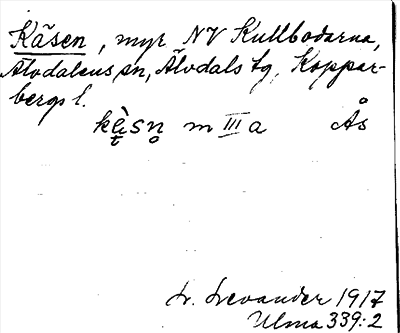 Käsen, myr NV Kullbodarna,
Älvdalens sn, Älvdals tg, Koppar-
bergs l.
kèsn m III a Ås
L. Levander 1917
Ulma 339:2